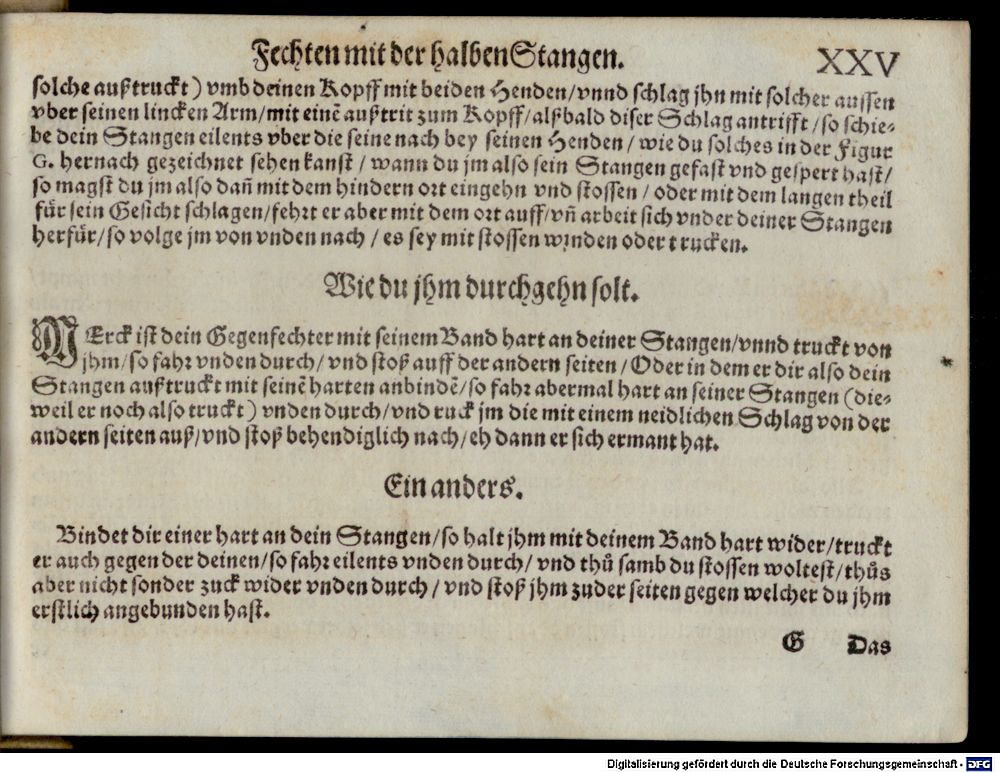 Fechten mit der halben Stangen.
XXV
solche außtruckt) vmb deinen Kopff mit beiden Henden/vnnd schlag jhn mit solcher aussen
vber seinen lincken Arm/mit einē außtrit zum Kopff/alßbald diser Schlag antrifft/so schie-
be dein Stangen eilents vber die seine nach bey seinen Henden/wie du solches in der Figur
G. hernach gezeichnet sehen kanst/wann du jm also sein Stangen gefast vnd gespert hast/
so magst du jm also dañ mit dem hindern ort eingehn vnd stossen/oder mit dem langen theil
für sein Gesicht schlagen/fehrt er aber mit dem ort auff/vñ arbeit sich vnder deiner Stangen
herfür/so volge jm von vnden nach/es sey mit stossen winden oder trucken.
Wie du jhm durchgehn solt.
MErck ist dein Gegenfechter mit seinem Band hart an deiner Stangen/vnnd truckt von
jhm/so fahr vnden durch/vnd stoß auff der andern seiten/Oder in dem er dir also dein
Stangen außtruckt mit seinē harten anbindē/so fahr abermal hart an seiner Stangen (die-
weil er noch also truckt) vnden durch/vnd ruck jm die mit einem neidlichen Schlag von der
andern seiten auß/vnd stoß behendiglich nach/eh dann er sich ermant hat.
Ein anders.
Bindet dir einer hart an dein Stangen/so halt jhm mit deinem Band hart wider/truckt
er auch gegen der deinen/so fahr eilents vnden durch/vnd thů samb du stossen woltest/thůs
aber nicht sonder zuck wider vnden durch/vnd stoß jhm zuder seiten gegen welcher du jhm
erstlich angebunden hast.
G Das
Digitalisierung gefördert durch die Deutsche Forschungsgemeinschaft - DFG